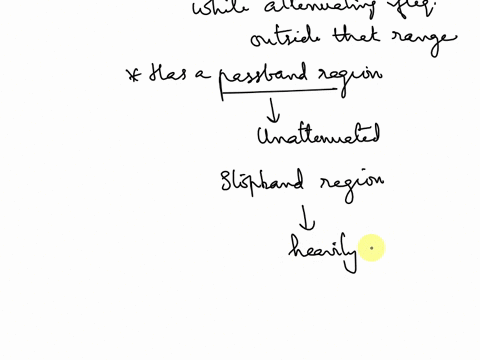 while attenuating freq.
outside that range
* Has a passband region
↓
Unattenuated
Stopband region
↓
heavily